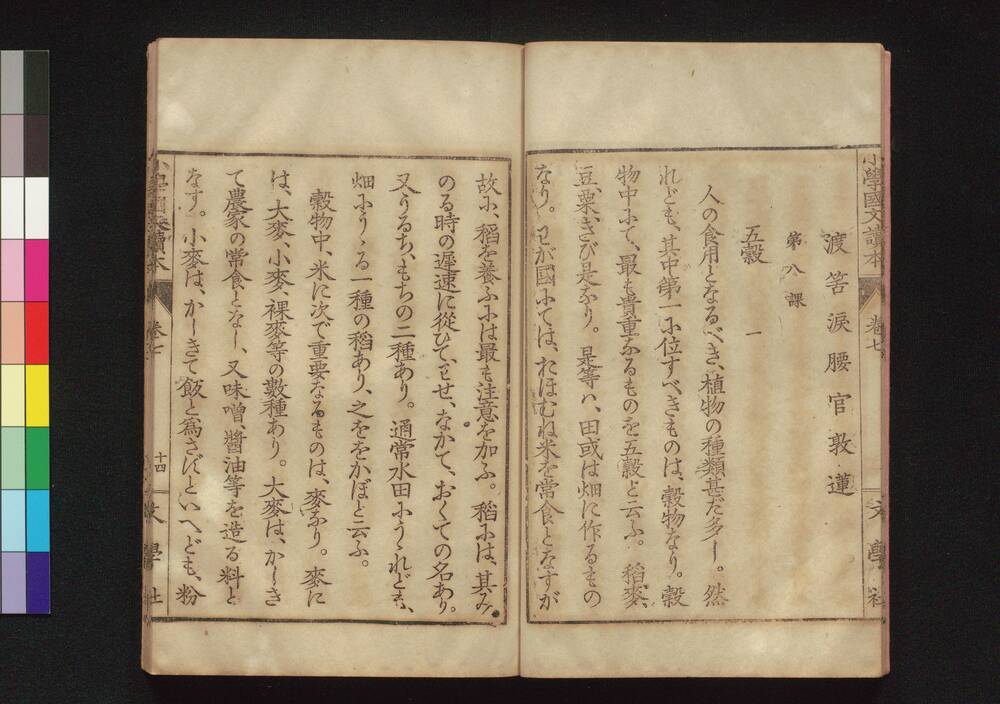 小學國文讀本
卷七
文學社
渡 笘 淚 腰 官 敦 蓮
第八課
五穀 一
人の食用となるべき、植物の種類甚だ多し。然
れども、其中第一に位すべきものは、穀物なり。穀
物中にて、最も貴重なるものを五穀と云ふ。稻、麥、
豆、粟、きび是なり。是等ハ、田或は畑に作るもの
なり。わが國にては、おほむね米を常食となすが
故に、稻を養ふには最も注意を加ふ。稻には、其み
のる時の遲速に從ひて、わせ、なかて、おくての名あり。
又うるち、もちの二種あり。通常水田にうゝれども、
畑にうゝる一種の稻あり、之ををかぼと云ふ。
穀物中、米に次で重要なるものは、麥なり。麥に
は、大麥、小麥、裸麥等の數種あり。大麥は、かしき
て農家の常食となし、又味噌、醬油等を造る料と
なす。小麥は、かしきて飯と爲さずといへども、粉
小學國文讀本
卷七
十四
文學社